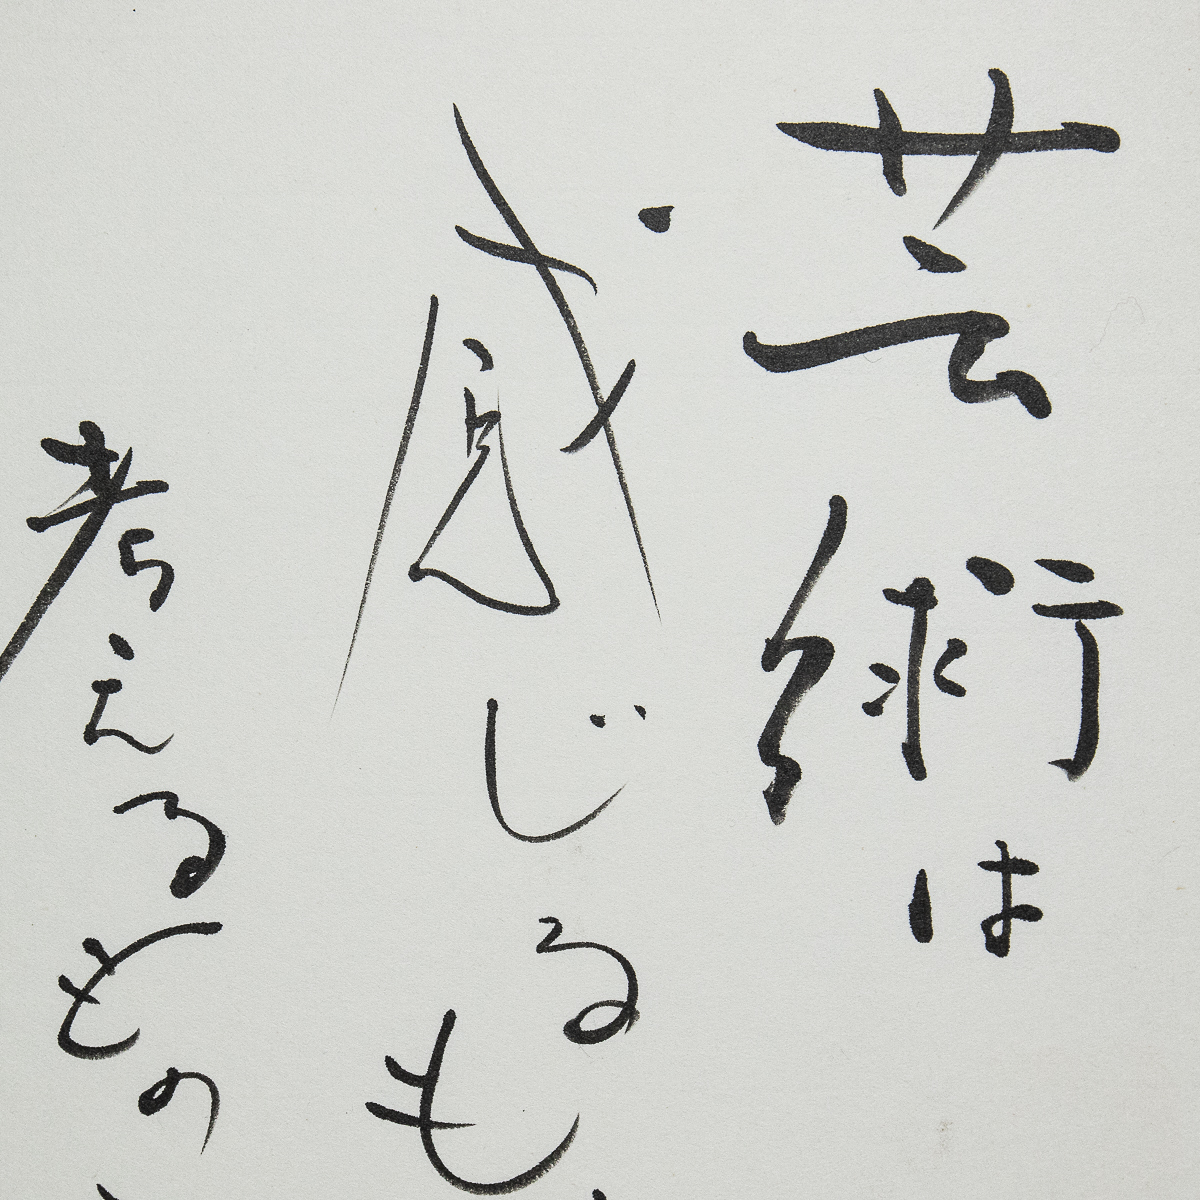 芸術は
感じるも
考えるもの